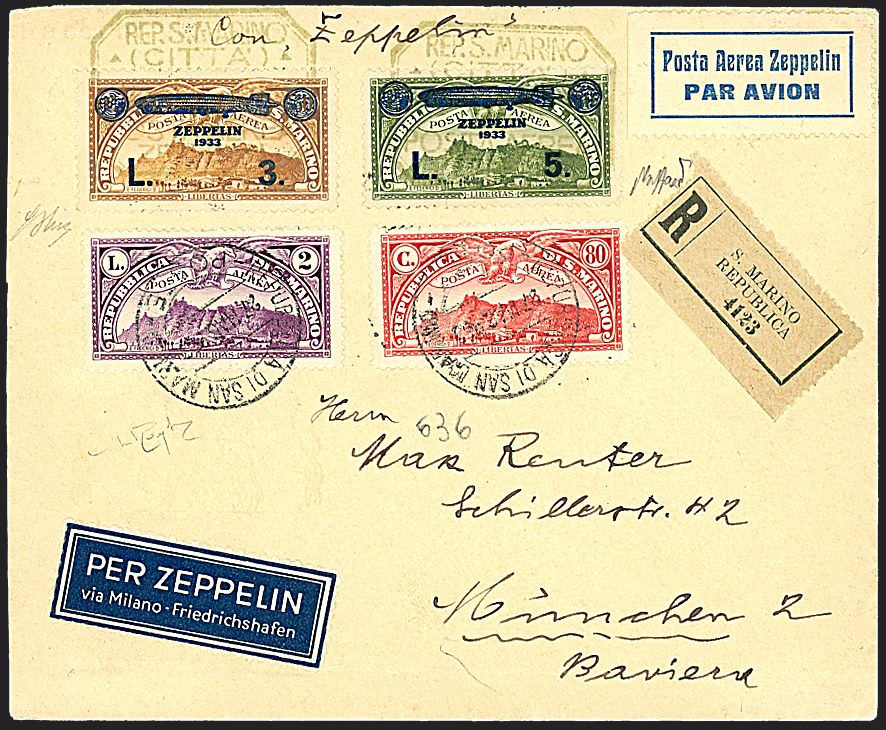 Con Zeppelin
REP. S. MARINO
(CITTÀ)
REP. S. MARINO
(CITTÀ)
Posta Aerea Zeppelin
PAR AVION
REPUBBLICA DI S. MARINO
POSTA AEREA
ZEPPELIN
1933
L. 3.
LIBERTAS
REPUBBLICA DI S. MARINO
POSTA AEREA
ZEPPELIN
1933
L. 5.
LIBERTAS
R
S. MARINO
REPUBBLICA
4123
L. 2
REPUBBLICA DI S. MARINO
POSTA AEREA
LIBERTAS
C. 80
REPUBBLICA DI S. MARINO
POSTA AEREA
LIBERTAS
DI SAN MAR
DI SAN
Herrn
636
Max Reuter
Schillerstr. 42
München 2
Baviera
PER ZEPPELIN
via Milano - Friedrichshafen